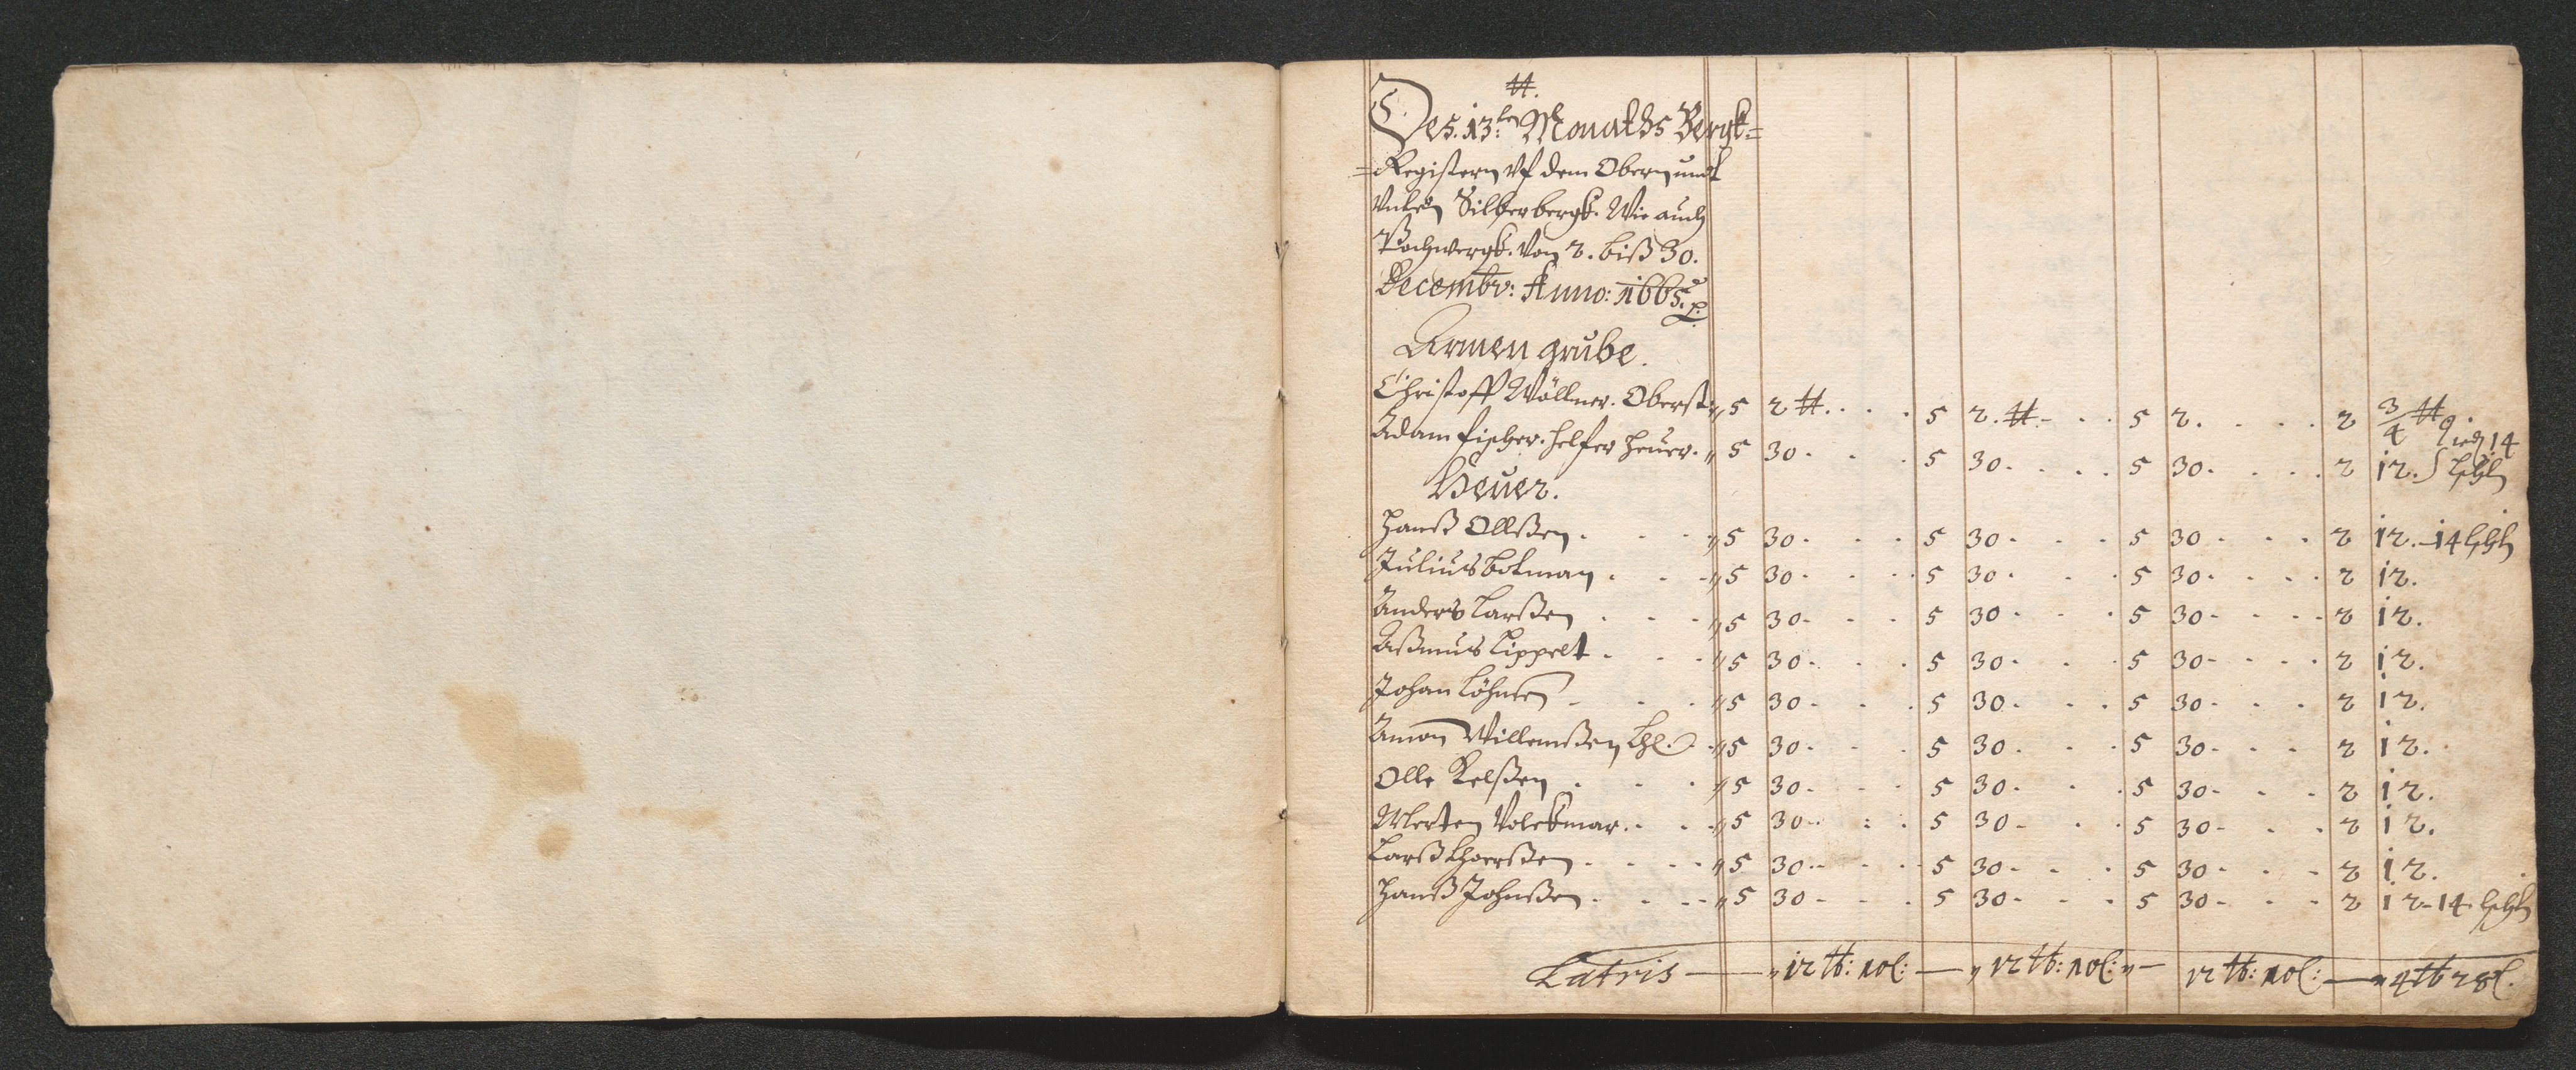 tt.
Des. 13:ten Monaths Bergk=
=Registern Vf dem Obern undt
Untern Silberbergk. Wie auch
Pochwergk. Von 2. biß 30.
Decembr: Anno: 1665.
Armen grube.
Christoff Wöllner. Oberst: „ 5 2 tt. . . . 5 2. tt. - . . 5 2. . . . . 2 3/4 tt.
Adam fischer. helfer heuer. „ 5 30. . . . 5 30. . . . 5 30. . . . 2 12. 14
Heuer.
Hanß Ollßen . . . „ 5 30. . . . 5 30. . . . 5 30. . . . 2 12. - 14
Julius botman . . . „ 5 30. . . . 5 30. . . . 5 30. . . . 2 12.
Anders Larßen . . . „ 5 30. . . . 5 30. . . . 5 30. . . . 2 12.
Aßmus Lippelt . . . „ 5 30. . . . 5 30. . . . 5 30. . . . 2 12.
Johan Löhnsen . . . „ 5 30. . . . 5 30. . . . 5 30. . . . 2 12.
Amon Willemßen „ 5 30. . . . 5 30. . . . 5 30. . . . 2 12.
Olle Kelßen . . . „ 5 30. . . . 5 30. . . . 5 30. . . . 2 12.
Merten Volckmar. . . „ 5 30. . . . 5 30. . . . 5 30. . . . 2 12.
Larß . . . „ 5 30. . . . 5 30. . . . 5 30. . . . 2 12.
Hanß Johnßen . . . „ 5 30. . . . 5 30. . . . 5 30. . . . 2 12 - 14
Latris — „ 12 tt: — „ 12 tt: „ — 12 tt: — „ 4 tt 28